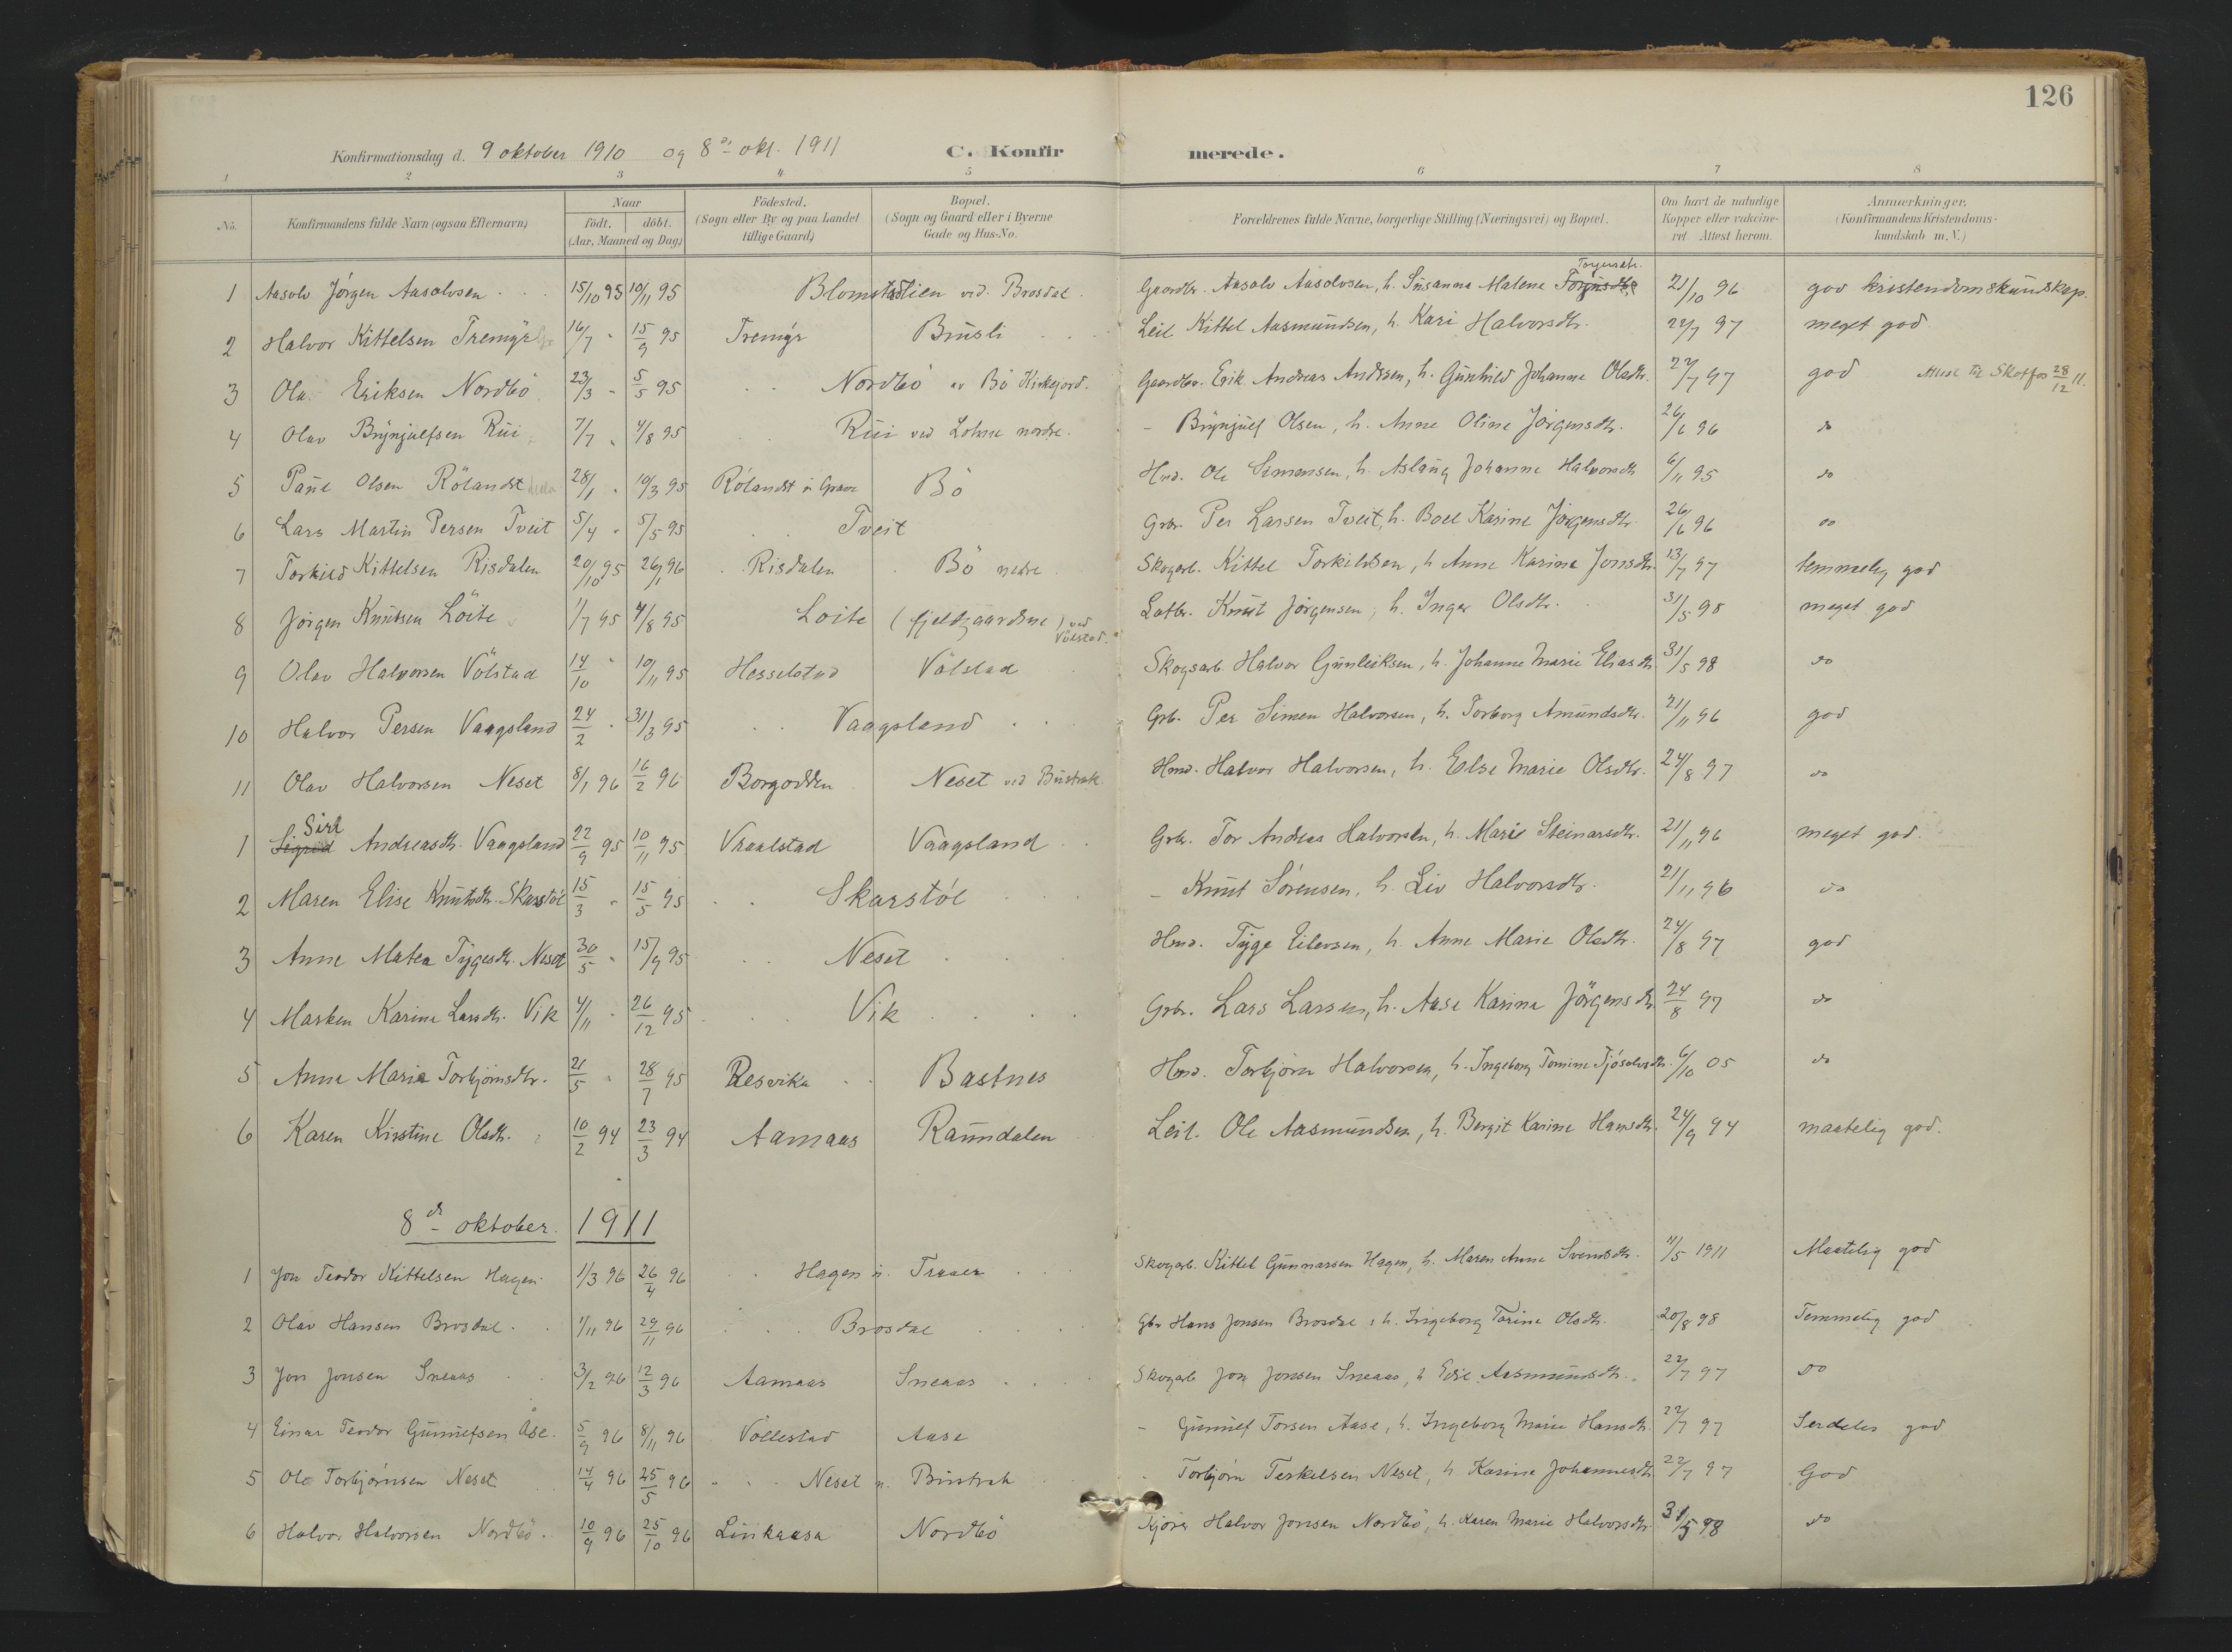 126
Konfirmationsdag d. 9 oktober 1910 og 8de okt. 1911 C. Konfirmerede.
1 2 3 4 5 6 7 8
No. Konfirmandens fulde Navn (ogsaa Efternavn) Naar födt, döbt. (Aar, Maaned og Dag) Födested. (Sogn eller By og paa Landet tillige Gaard) Bopæl. (Sogn og Gaard eller i Byerne Gade og Hus-No. Forældrenes fulde Navne, borgerlige Stilling (Næringsvei) og Bopæl. Om havt de naturlige Kopper eller vakcineret. Attest herom. Anmærkninger. (Konfirmandens Kristendomskundskab m. V.)
1 Aasolv Jörgen Aasolvsen 15/10 95 10/11 95 Blomstadlien ved Brosdal. Gaardbr. Aasolv Aasolvsen, h. Susanna Malene Torjersdtr. 21/10 96 god kristendomskundskap.
2 Halvor Kittelsen Tremyr 16/7 " 15/9 95 Tremyr Busli Leil Kittel Aasmundsen, h. Kari Halvorsdtr. 22/7 97 meget god
3 Ola Eriksen Nordbö 23/3 - 5/5 95 Nordbö av Bö Kirkejord. Gaardbr. Erik Andreas Andersen, h. Gunhild Johanne Olsdtr. 22/7 97 god Til Skotfos 28/12 11.
4 Olav Brynjulfsen Rui 7/7 " 4/8 95 Rui ved Lohne nordre. - Brynjulf Olsen, h. Anne Oline Jörgensdtr. 26/6 96 do
5 Paul Olsen Rölandst 28/1 " 10/3 95 Rölandst u. Grave Bö Hmd. Ole Simonsen, h. Aslaug Johanne Halvorsdtr 6/11 95 do
6 Lars Martin Persen Tveit 5/4 " 5/5 95 Tveit Grbr. Per Larsen Tveit, h. Boel Karine Jörgensdtr 26/6 96 do
7 Torkild Kittelsen Risdalen 20/10 95 26/1 96 Risdalen Bö nedre Skogarb. Kittel Torkildsen, h Anne Karine Jonsdtr. 13/7 97 temmelig god
8 Jörgen Knutsen Löite 1/7 95 4/8 95 Loite (fjeldgaardene) ved Völstad. Knut Jörgensen, h. Inger Olsdtr. 31/5 98 meget god
9 Olav Halvorsen Völstad 14/10 " 10/11 95 Hesselstad Völstad Skogsarb. Halvor Gunleiksen, h. Johanne Marie Eliasdtr 31/5 98 do
10 Halvor Persen Vaagsland 24/2 " 31/3 95 Vaagsland Grb. Per Simen Halvorsen, h. Torborg Amundsdtr. 21/11 96 god
11 Olav Halvorsen Neset 8/1 96 16/2 96 Borgodden Neset ved Bustrak Hmd. Halvor Halvorsen, h. Else Marie Olsdtr. 24/8 97 do
1 Sigrid Siri Andreasdtr. Vaagsland 22/9 95 10/11 95 Vraalstad Vaagsland Grbr. Tor Andreas Halvorsen, h. Marie Steinarsdtr. 21/11 96 meget god.
2 Maren Elise Knutsdtr. Skarstöl 15/3 " 15/5 95 Skarstöl - Knut Sörensen, h. Liv Halvorsdtr. 21/11 96 do
3 Anne Matea Tygesdtr. Neset 30/5 " 15/9 95 Neset Hmd. Tyge Eilevsen, h. Anne Marie Olsdtr. 24/8 97 god
4 Marken Karine Larsdtr. Vik 4/11 " 26/12 95 Vik Grbr. Lars Larsen, h. Aase Karine Jörgensdtr. 24/8 97 do
5 Anne Marie Torbjörnsdtr. 21/5 " 28/7 95 Resvika Bastnes Hmd. Torbjörn Halvorsen, h. Ingeborg Tomine Tjösolvsdtr. 6/10 05 do
6 Karen Kirstine Olsdtr. 10/2 94 23/3 94 Aamaas Raundalen Leil. Ole Aasmundsen, h. Bergit Karine Hansdtr. 24/9 94 maatelig god.
8de oktober 1911
1 Jon Teodor Kittelsen Hagen 1/3 96 26/4 96 Hagen u. Traaen Skogarb. Kittel Gunnarsen Hagen, h. Maren Anne Svensdtr. 11/5 1911 Maatelig god
2 Olav Hansen Brosdal 1/11 96 29/11 96 Brosdal Gbr Hans Jonsen Brosdal, h. Ingeborg Torine Olsdtr. 20/8 98 Temmelig god
3 Jon Jonsen Sneaas 3/2 96 12/3 96 Aamaas Sneaas Skogarb Jon Jonsen Sneaas, h Else Aasmundsdtr. 22/7 97 do
4 Einar Teodor Gunnulfsen Åse. 5/9 96 8/11 96 Völlestad Aase - Gunnulf Torsen Aase, h. Ingeborg Marie Hansdtr. 22/7 97 Serdeles god
5 Ole Torbjörnsen Neset 14/4 96 25/5 96 Neset u. Bustrak - Torbjörn Terkelsen Neset, h Karine Johannesdtr 22/7 97 God
6 Halvor Halvorsen Nordbö 10/9 96 25/10 96 Linkaasa Nordbö Halvor Jonsen Nordbö, h. Karen Marie Halvorsdtr 31/5 98 do